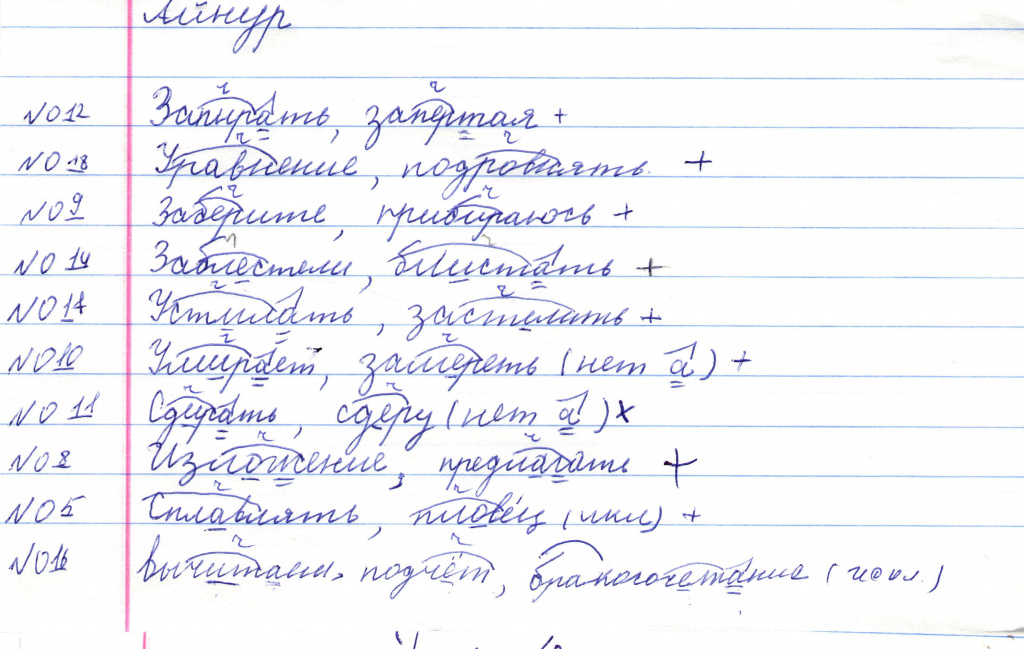 Айнур
№012 Запирать, запертая +
№018 Уравнение, подровнять. +
№09 Заберите, прибираюсь +
№014 Заблестели, блистать +
№017 Устилать, застелить +
№010 Умирает, замереть (нет а) +
№011 Сдирать, сдеру (нет а) х
№08 Изложение, предлагать +
№05 Сплавлять, пловец (искл) +
№016 Вычитаем, подчёт, бракосочетание (искл.)